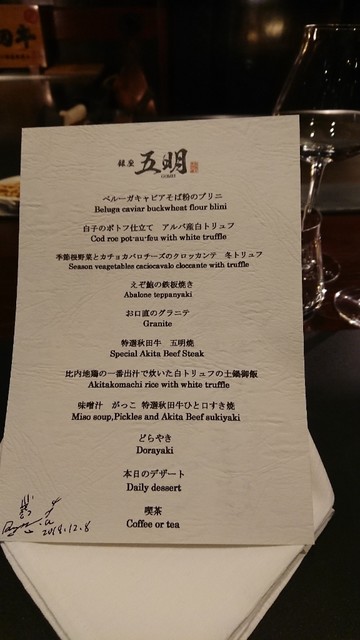 銀座 五明
GOMEI
ベルーガキャビアそば粉のブリニ
Beluga caviar buckwheat flour blini
白子のポトフ仕立て アルバ産白トリュフ
Cod roe pot-au-feu with white truffle
季節根野菜とカチョカバロチーズのクロッカンテ 冬トリュフ
Season veagetables caciocavalo cloccante with truffle
えぞ鮑の鉄板焼き
Abalone teppanyaki
お口直のグラニテ
Granite
特選秋田牛 五明焼
Special Akita Beef Steak
比内地鶏の一番出汁で炊いた白トリュフの土鍋御飯
Akitakomachi rice with white truffle
味噌汁 がっこ 特選秋田牛ひと口すき焼
Miso soup,Pickles and Akita Beef sukiyaki
どらやき
Dorayaki
本日のデザート
Daily dessert
喫茶
Coffee or tea
2018.12.8